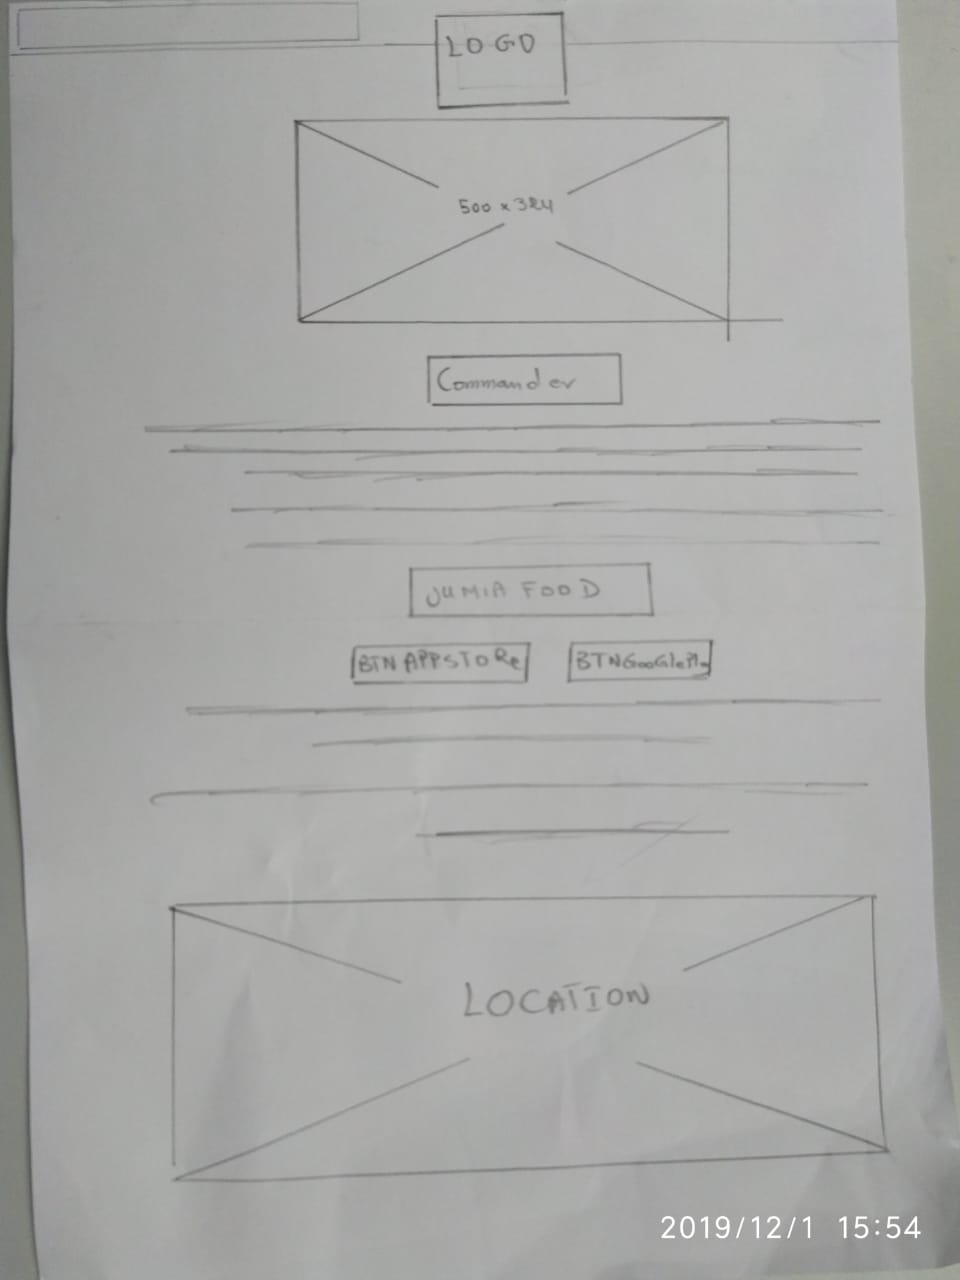 LOGO
500 x 324
Commander
JUMIA FOOD
BTN APPSTORe
BTNGooGlePla
LOCATION
2019/12/1 15:54